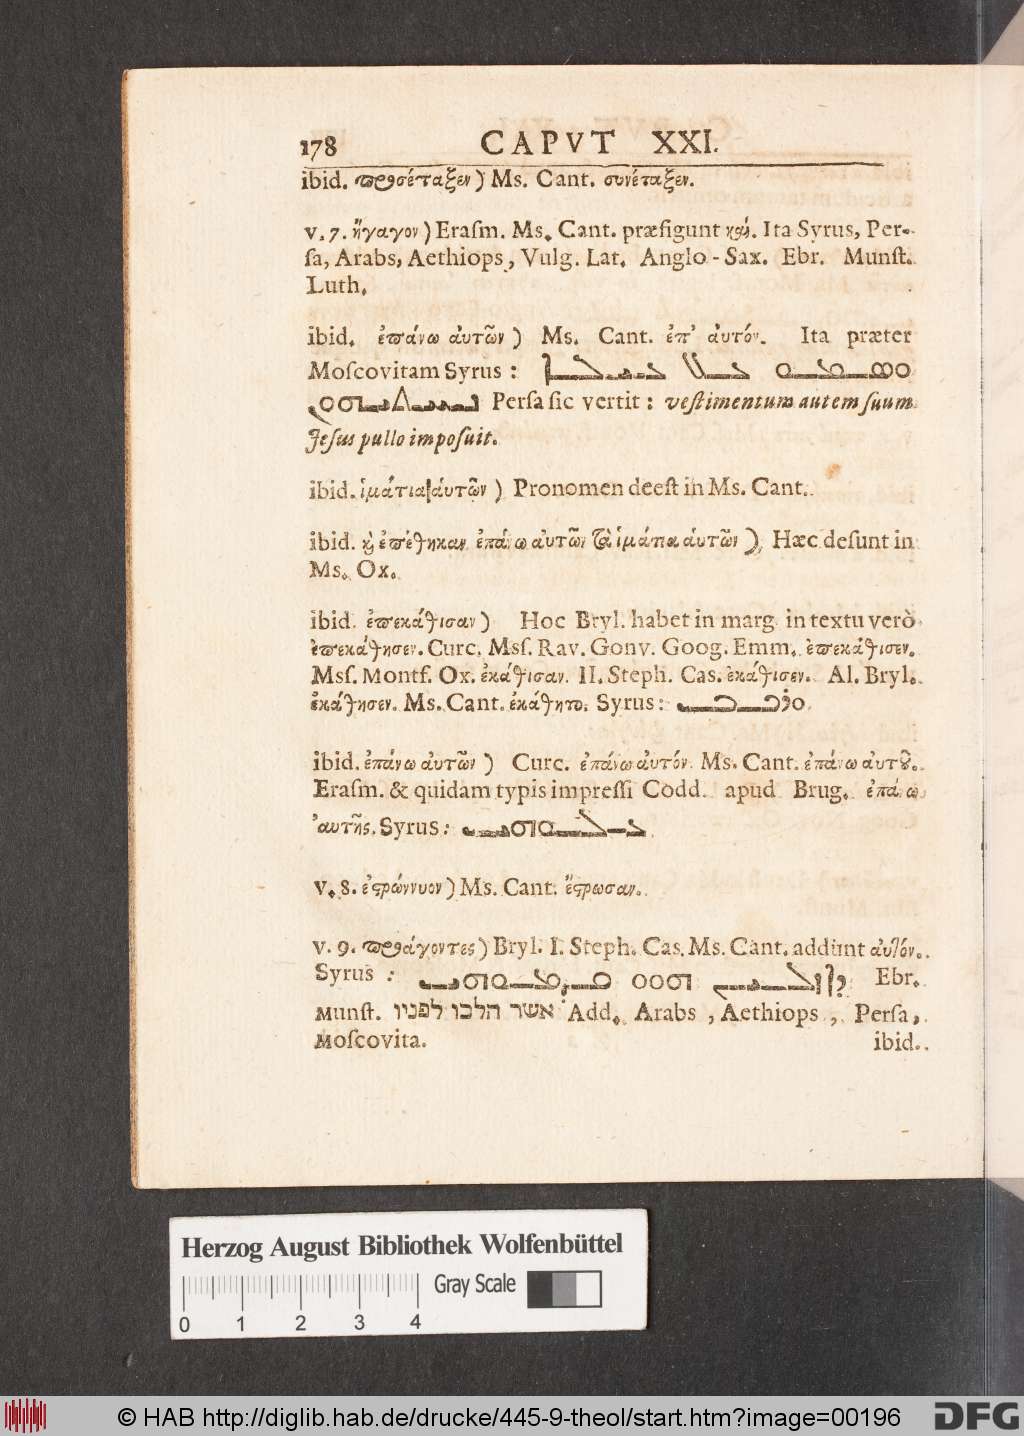 178 CAPVT XXI.
ibid. προσέταξεν) Ms. Cant. συνέταξεν.
v. 7. ἤγαγον) Eraſm. Ms. Cant. præfigunt καὶ. Ita Syrus, Per-
ſa, Arabs, Aethiops, Vulg. Lat. Anglo-Sax. Ebr. Munſt.
Luth.
ibid. ἐπάνω ἀυτῶν) Ms. Cant. ἐπ' ἀυτόν. Ita præter
Moſcovitam Syrus: ܘܣܡܘ ܥܠ ܥܝܠܐ
ܢܚܬܝܗܘܢ Perſa ſic vertit: veſtimentum autem ſuum
Jeſus pullo impoſuit.
ibid. ἱμάτια ἁυτῶν) Pronomen deeſt in Ms. Cant.
ibid. καὶ ἐπέθηκαν ἐπάνω ἀυτῶν τὰ ἱμάτια ἁυτῶν), Hæc deſunt in
Ms. Ox.
ibid. ἐπεκάθισαν) Hoc Bryl. habet in marg. in textu verò
ἐπεκάθησεν. Curc. Mſſ. Rav. Gonv. Goog. Emm. ἐπεκάθισεν.
Mſſ. Montf. Ox. ἐκάθισαν. II. Steph. Cas. ἐκάθισεν. Al. Bryl.
ἐκάθησεν. Ms. Cant. ἐκάθητο. Syrus: ܘܪܟܒ
ibid. ἐπάνω ἀυτῶν) Curc. ἐπάνω ἀυτόν. Ms. Cant. ἐπάνω ἀυτοῦ.
Eraſm. & quidam typis impreſſi Codd. apud Brug. ἐπάνω
ἀυτῆς. Syrus: ܥܠܘܗܝ
v. 8. ἐστρώννυον) Ms. Cant. ἔστρωσαν.
v. 9. προάγοντες) Bryl. I. Steph. Cas. Ms. Cant. addunt ἀυτόν.
Syrus: ܕܐܙܠܝܢ ܗܘܘ ܩܕܡܘܗܝ Ebr.
Munſt. אשר הלכו לפניו Add. Arabs, Aethiops, Perſa,
Moſcovita.
ibid.
Herzog August Bibliothek Wolfenbüttel
Gray Scale
0 1 2 3 4
© HAB http://diglib.hab.de/drucke/445-9-theol/start.htm?image=00196 DFG